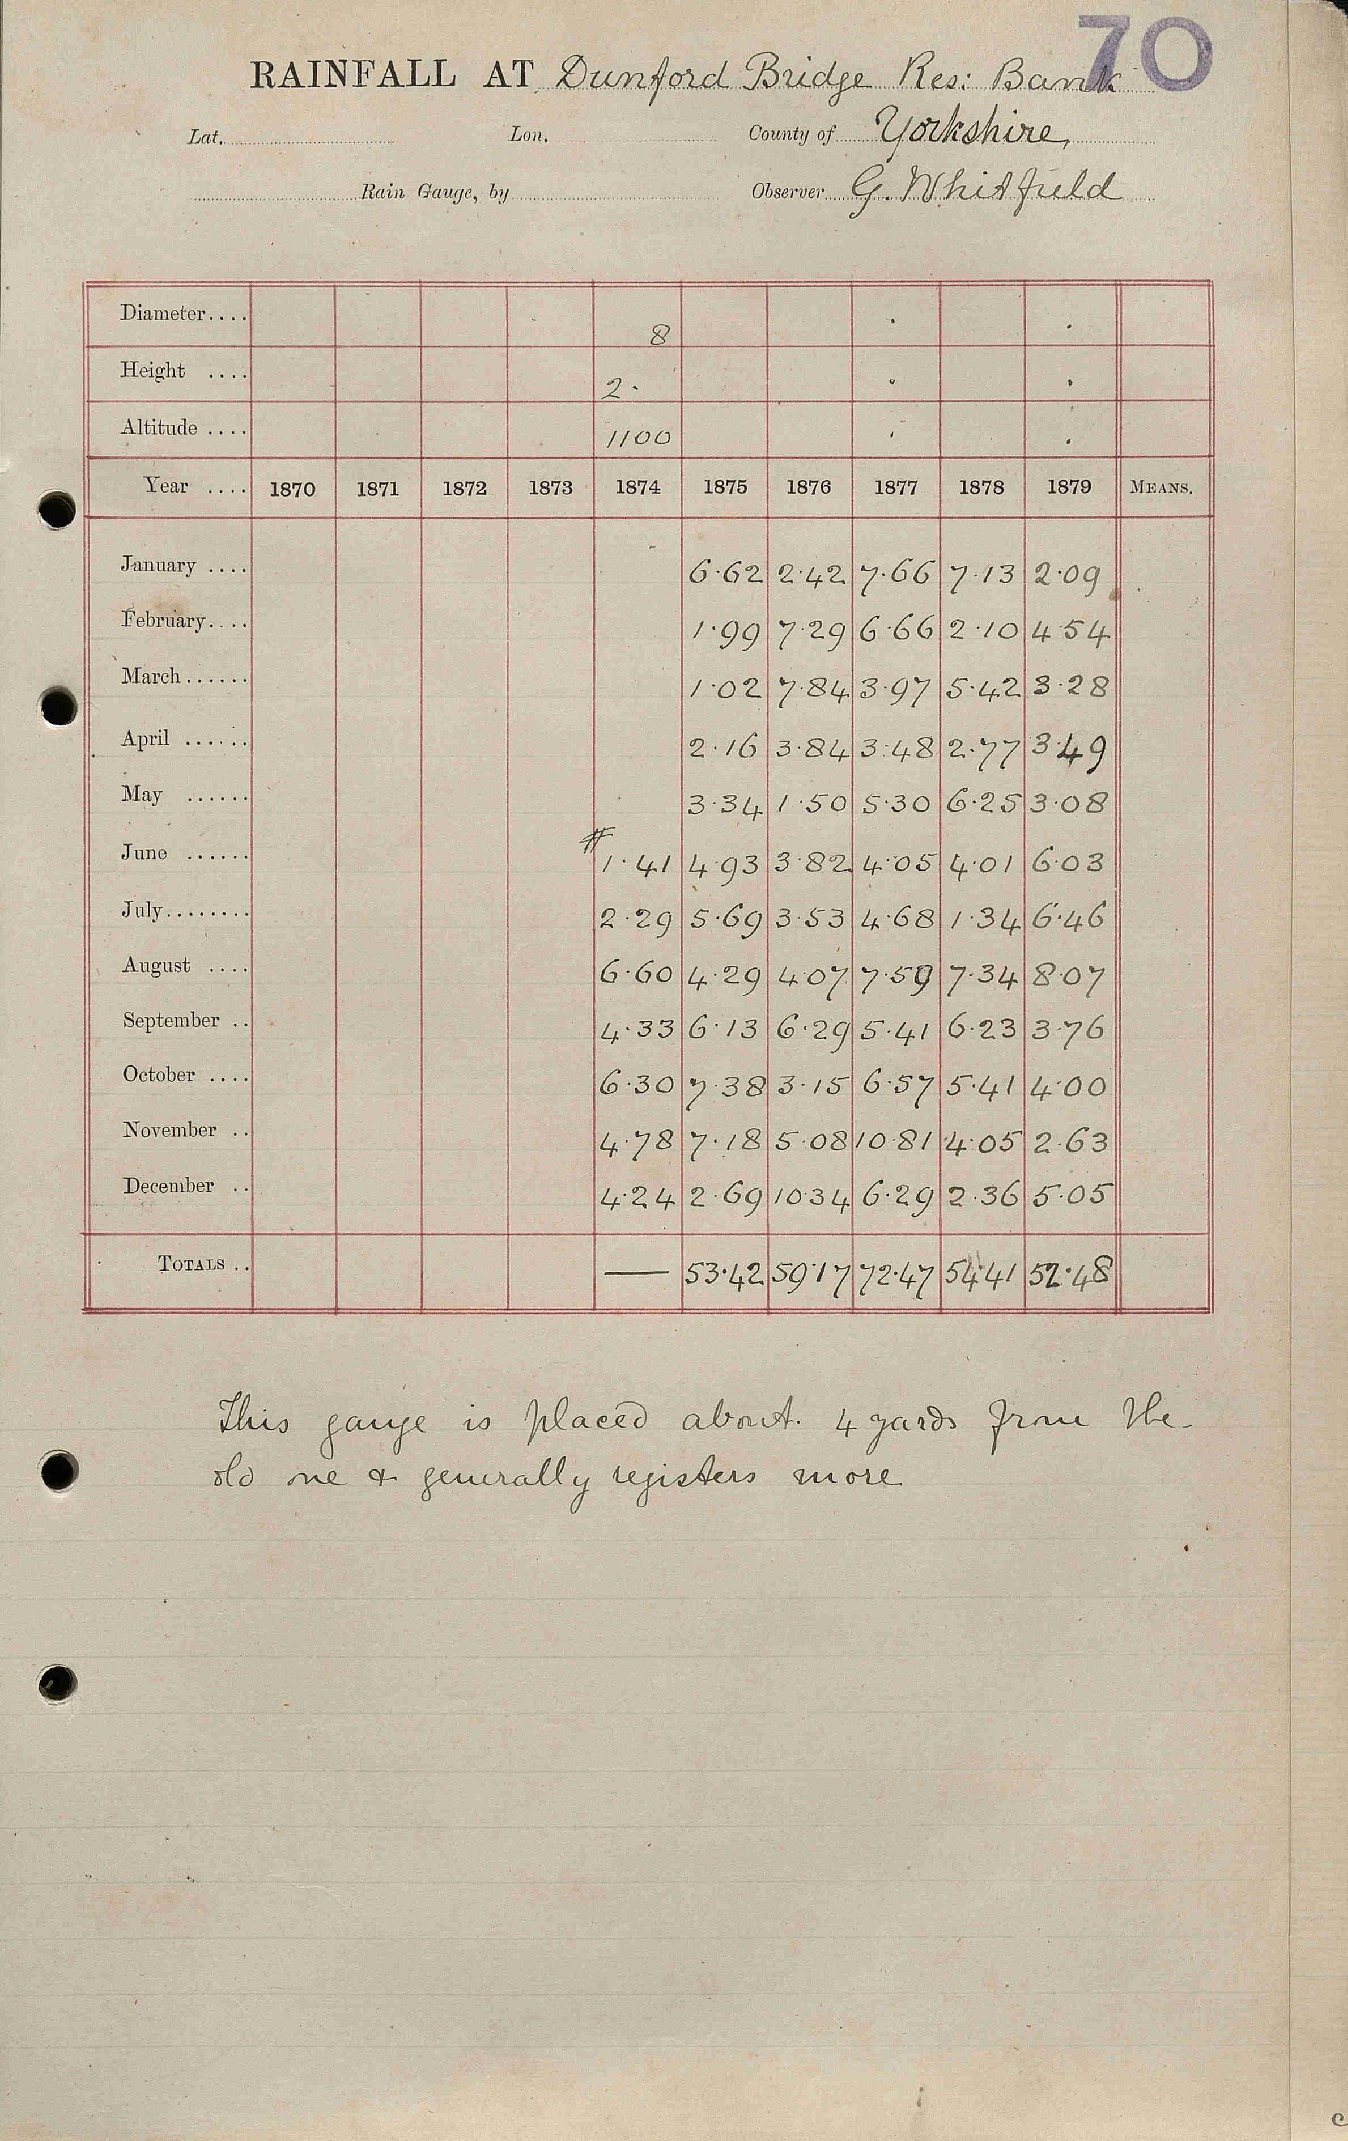 70
RAINFALL AT Dunford Bridge Res: Bank
Lat. Lon. County of Yorkshire
Rain Gauge, by Observer G. Whitfield
Diameter.... 8
Height .... 2.
Altitude .... 1100
Year .... 1870 1871 1872 1873 1874 1875 1876 1877 1878 1879 MEANS.
January .... 6.62 2.42 7.66 7.13 2.09
February.... 1.99 7.29 6.66 2.10 4.54
March...... 1.02 7.84 3.97 5.42 3.28
April ...... 2.16 3.84 3.48 2.77 3.49
May ...... 3.34 1.50 5.30 6.25 3.08
June ...... # 1.41 4.93 3.82 4.05 4.01 6.03
July........ 2.29 5.69 3.53 4.68 1.34 6.46
August .... 6.60 4.29 4.07 7.59 7.34 8.07
September .. 4.33 6.13 6.29 5.41 6.23 3.76
October .... 6.30 7.38 3.15 6.57 5.41 4.00
November .. 4.78 7.18 5.08 10.81 4.05 2.63
December .. 4.24 2.69 10.34 6.29 2.36 5.05
TOTALS .. — 53.42 59.17 72.47 54.41 52.48
This gauge is placed about. 4 yards from the
old one & generally registers more